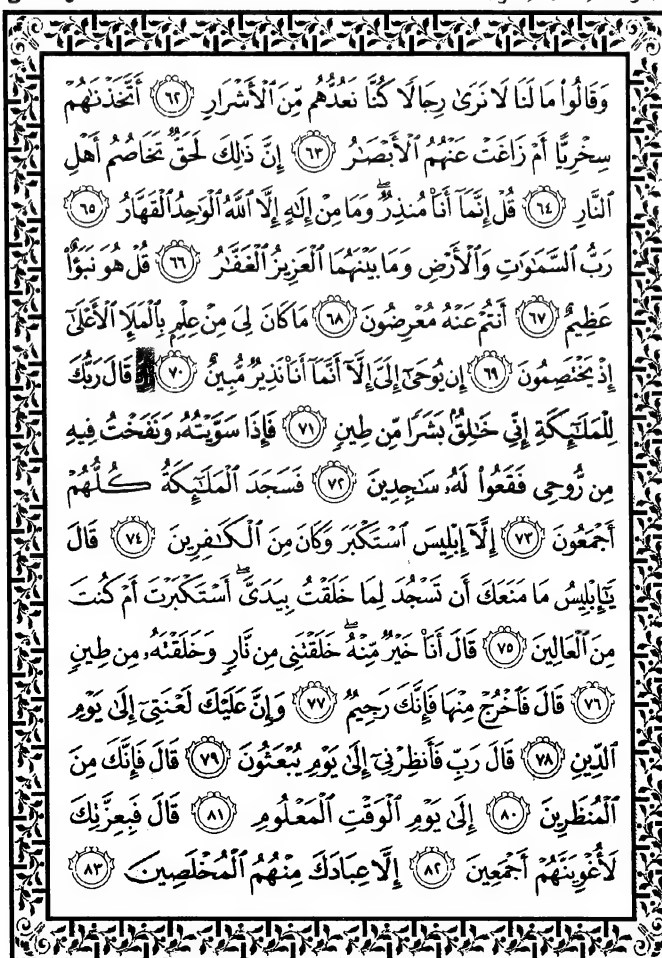 وَقَالُواْ مَا لَنَا لَا نَرَىٰ رِجَالًا كُنَّا نَعُدُّهُم مِّنَ ٱلْأَشْرَارِ ﴿٦٢﴾ أَتَّخَذْنَٰهُمْ
سِخْرِيًّا أَمْ زَاغَتْ عَنْهُمُ ٱلْأَبْصَٰرُ ﴿٦٣﴾ إِنَّ ذَٰلِكَ لَحَقٌّ تَخَاصُمُ أَهْلِ
ٱلنَّارِ ﴿٦٤﴾ قُلْ إِنَّمَآ أَنَا۠ مُنذِرٌ ۖ وَمَا مِنْ إِلَٰهٍ إِلَّا ٱللَّهُ ٱلْوَٰحِدُ ٱلْقَهَّارُ ﴿٦٥﴾
رَبُّ ٱلسَّمَٰوَٰتِ وَٱلْأَرْضِ وَمَا بَيْنَهُمَا ٱلْعَزِيزُ ٱلْغَفَّٰرُ ﴿٦٦﴾ قُلْ هُوَ نَبَؤٌاْ
عَظِيمٌ ﴿٦٧﴾ أَنتُمْ عَنْهُ مُعْرِضُونَ ﴿٦٨﴾ مَا كَانَ لِىَ مِنْ عِلْمٍۭ بِٱلْمَلَإِ ٱلْأَعْلَىٰٓ
إِذْ يَخْتَصِمُونَ ﴿٦٩﴾ إِن يُوحَىٰٓ إِلَىَّ إِلَّآ أَنَّمَآ أَنَا۠ نَذِيرٌ مُّبِينٌ ﴿٧٠﴾ قَالَ رَبُّكَ
لِلْمَلَٰٓئِكَةِ إِنِّى خَٰلِقٌۢ بَشَرًا مِّن طِينٍ ﴿٧١﴾ فَإِذَا سَوَّيْتُهُۥ وَنَفَخْتُ فِيهِ
مِن رُّوحِى فَقَعُواْ لَهُۥ سَٰجِدِينَ ﴿٧٢﴾ فَسَجَدَ ٱلْمَلَٰٓئِكَةُ كُلُّهُمْ
أَجْمَعُونَ ﴿٧٣﴾ إِلَّآ إِبْلِيسَ ٱسْتَكْبَرَ وَكَانَ مِنَ ٱلْكَٰفِرِينَ ﴿٧٤﴾ قَالَ
يَٰٓإِبْلِيسُ مَا مَنَعَكَ أَن تَسْجُدَ لِمَا خَلَقْتُ بِيَدَىَّ ۖ أَسْتَكْبَرْتَ أَمْ كُنتَ
مِنَ ٱلْعَالِينَ ﴿٧٥﴾ قَالَ أَنَا۠ خَيْرٌ مِّنْهُ ۖ خَلَقْتَنِى مِن نَّارٍ وَخَلَقْتَهُۥ مِن طِينٍ
﴿٧٦﴾ قَالَ فَٱخْرُجْ مِنْهَا فَإِنَّكَ رَجِيمٌ ﴿٧٧﴾ وَإِنَّ عَلَيْكَ لَعْنَتِىٓ إِلَىٰ يَوْمِ
ٱلدِّينِ ﴿٧٨﴾ قَالَ رَبِّ فَأَنظِرْنِىٓ إِلَىٰ يَوْمِ يُبْعَثُونَ ﴿٧٩﴾ قَالَ فَإِنَّكَ مِنَ
ٱلْمُنظَرِينَ ﴿٨٠﴾ إِلَىٰ يَوْمِ ٱلْوَقْتِ ٱلْمَعْلُومِ ﴿٨١﴾ قَالَ فَبِعِزَّتِكَ
لَأُغْوِيَنَّهُمْ أَجْمَعِينَ ﴿٨٢﴾ إِلَّا عِبَادَكَ مِنْهُمُ ٱلْمُخْلَصِينَ ﴿٨٣﴾